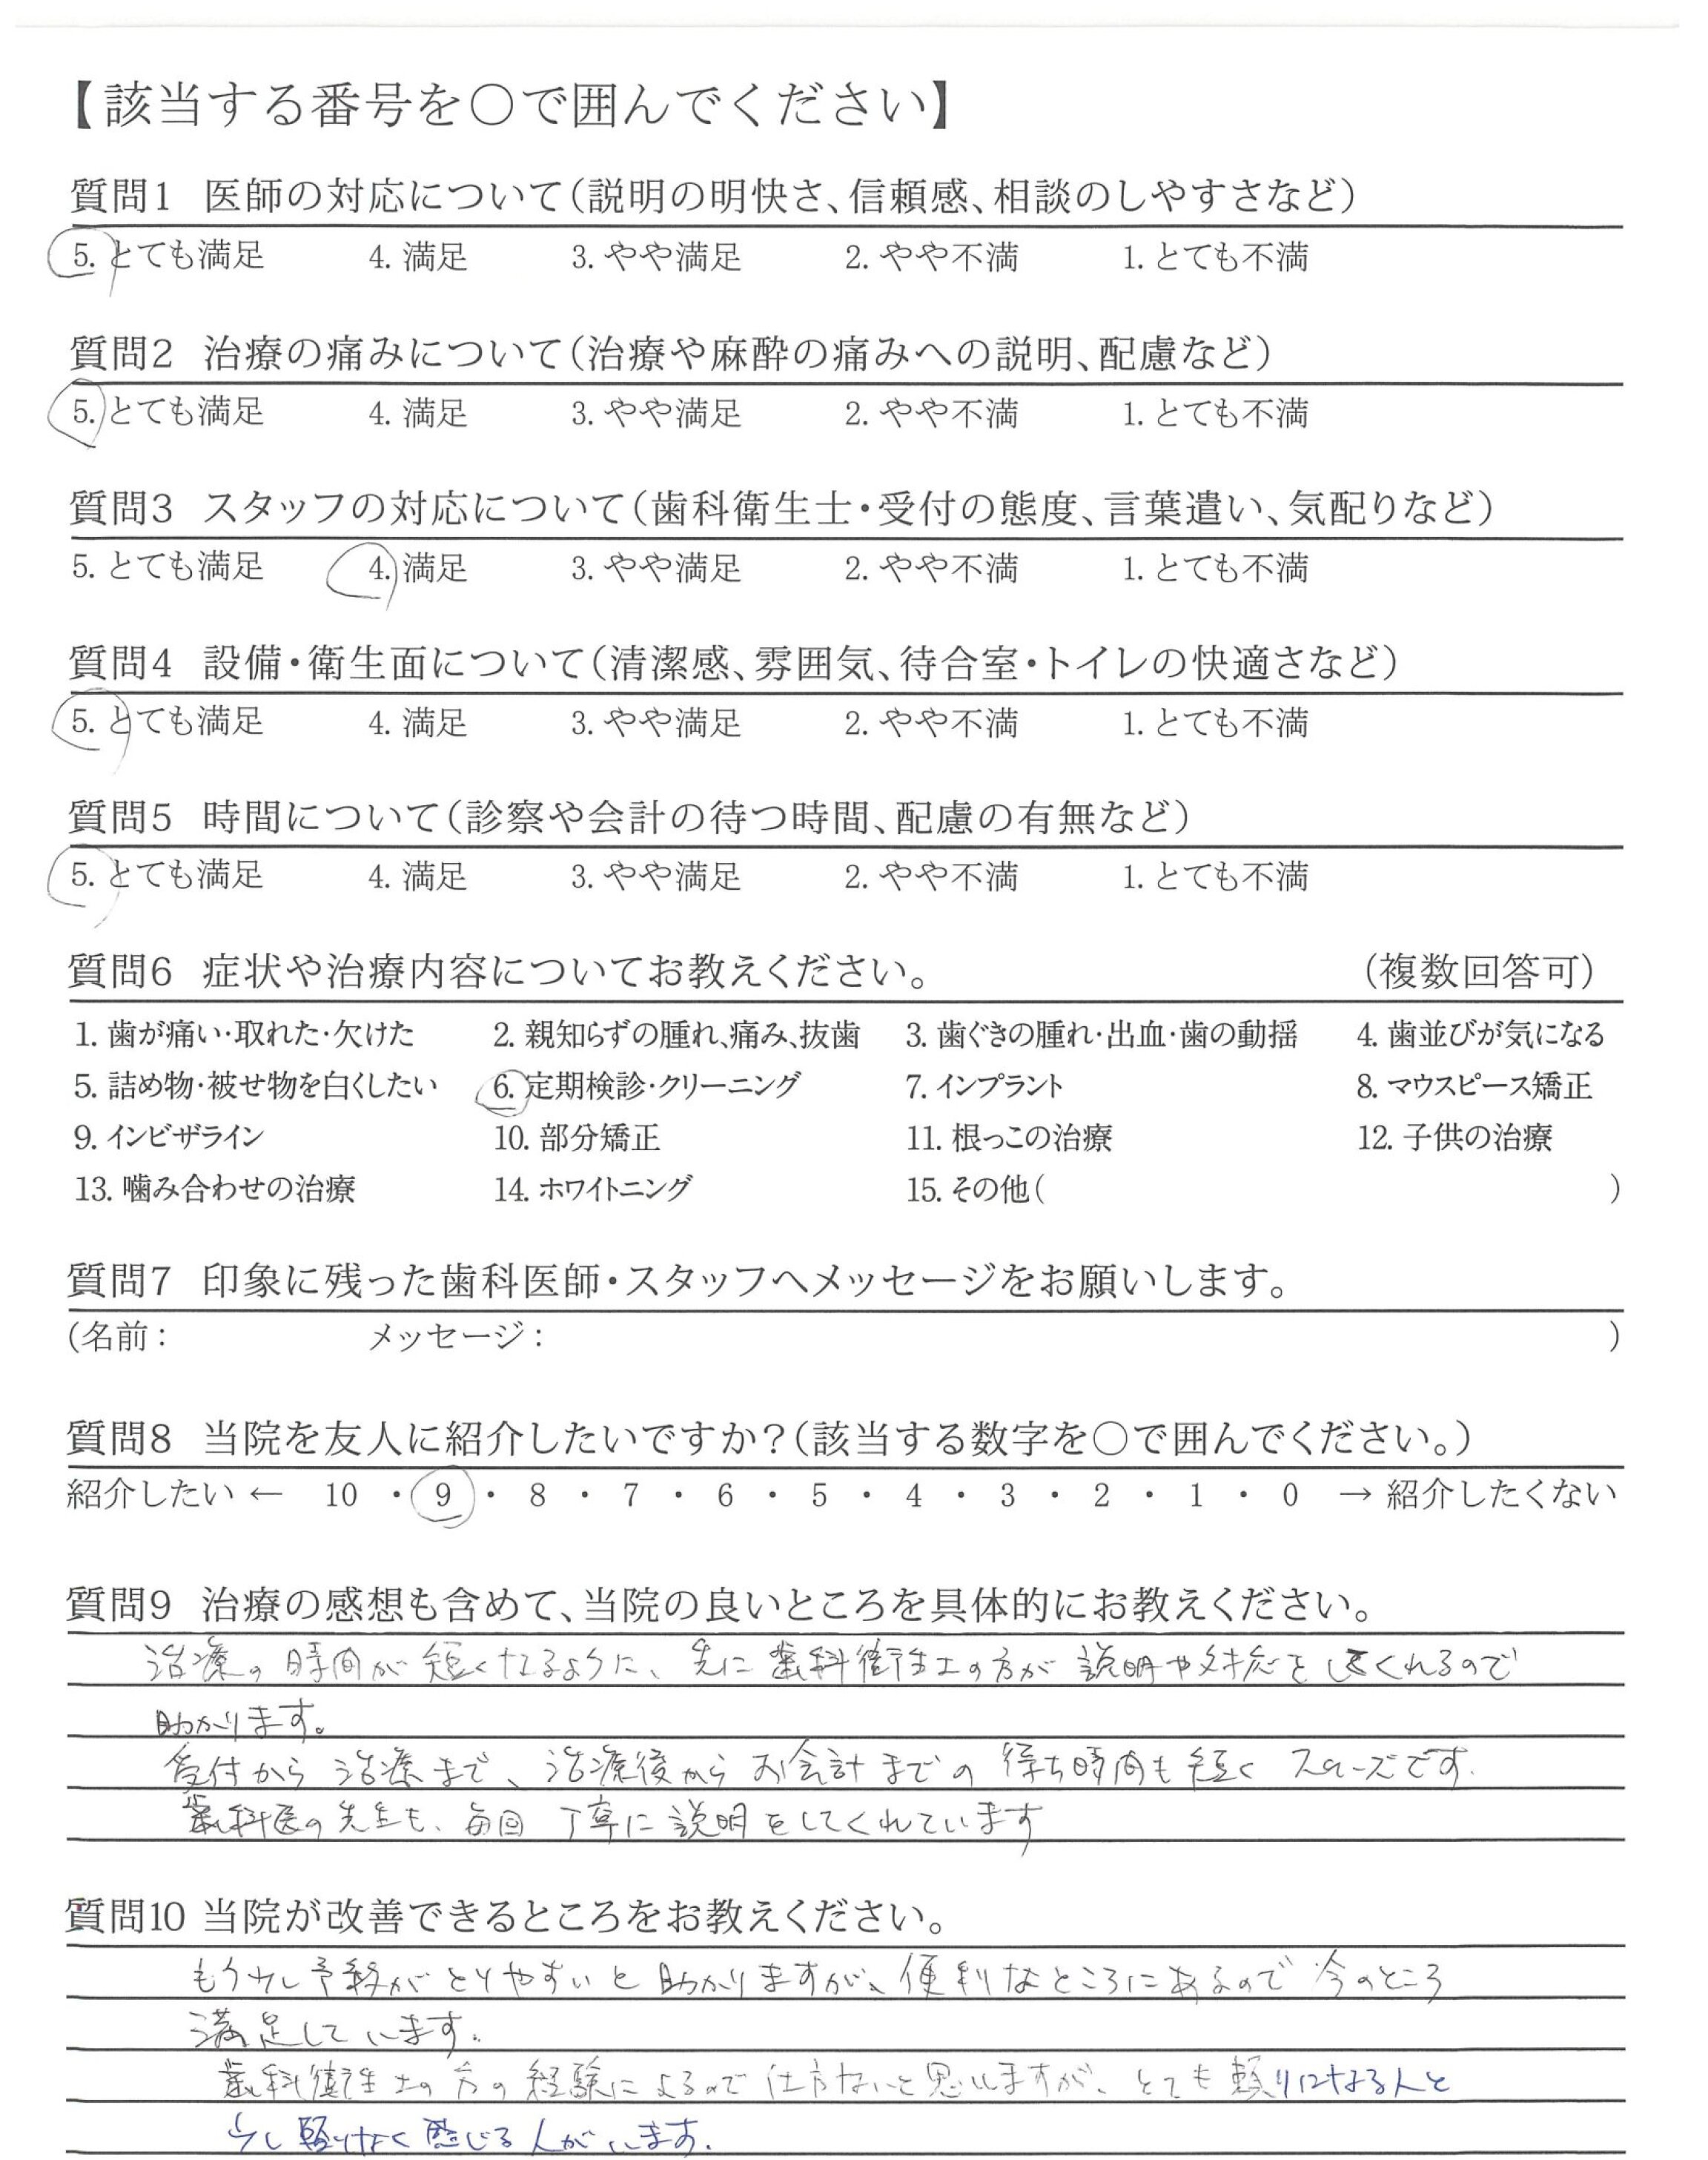 【該当する番号を○で囲んでください】
質問1 医師の対応について(説明の明快さ、信頼感、相談のしやすさなど)
5. とても満足 4. 満足 3. やや満足 2. やや不満 1. とても不満
質問2 治療の痛みについて(治療や麻酔の痛みへの説明、配慮など)
5. とても満足 4. 満足 3. やや満足 2. やや不満 1. とても不満
質問3 スタッフの対応について(歯科衛生士・受付の態度、言葉遣い、気配りなど)
5. とても満足 4. 満足 3. やや満足 2. やや不満 1. とても不満
質問4 設備・衛生面について(清潔感、雰囲気、待合室・トイレの快適さなど)
5. とても満足 4. 満足 3. やや満足 2. やや不満 1. とても不満
質問5 時間について(診察や会計の待つ時間、配慮の有無など)
5. とても満足 4. 満足 3. やや満足 2. やや不満 1. とても不満
質問6 症状や治療内容についてお教えください。 (複数回答可)
1. 歯が痛い・取れた・欠けた 2. 親知らずの腫れ、痛み、抜歯 3. 歯ぐきの腫れ・出血・歯の動揺 4. 歯並びが気になる
5. 詰め物・被せ物を白くしたい 6. 定期検診・クリーニング 7. インプラント 8. マウスピース矯正
9. インビザライン 10. 部分矯正 11. 根っこの治療 12. 子供の治療
13. 噛み合わせの治療 14. ホワイトニング 15. その他( )
質問7 印象に残った歯科医師・スタッフへメッセージをお願いします。
(名前: メッセージ: )
質問8 当院を友人に紹介したいですか?(該当する数字を○で囲んでください。)
紹介したい ← 10 ・ 9 ・ 8 ・ 7 ・ 6 ・ 5 ・ 4 ・ 3 ・ 2 ・ 1 ・ 0 → 紹介したくない
質問9 治療の感想も含めて、当院の良いところを具体的にお教えください。
治療の時間が短くなるように、先に歯科衛生士の方が説明や対応をしてくれるので
助かります。
受付から治療まで、治療後からお会計までの待ち時間も短くスムーズです.
歯科医の先生も、毎回丁寧に説明をしてくれています
質問10 当院が改善できるところをお教えください。
もう少し予約がとりやすいと助かりますが、便利なところにあるので今のところ
満足しています.
歯科衛生士の方の経験によるので仕方ないと思いますが、とても頼りになる人と
少し頼りなく感じる人がいます.